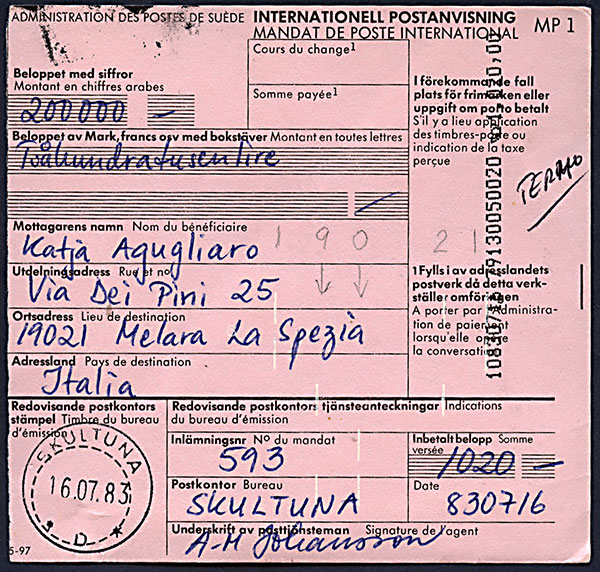 ADMINISTRATION DES POSTES DE SUÈDE INTERNATIONELL POSTANVISNING MP 1
MANDAT DE POSTE INTERNATIONAL
Cours du change1
Beloppet med siffror
Montant en chiffres arabes
200000 —
Somme payée1
I förekommande fall
plats för frimärken eller
uppgift om porto betalt
S'il y a lieu application
des timbres-poste ou
indication de la taxe
perçue
Beloppet av Mark, francs osv med bokstäver Montant en toutes lettres
Tvåhundratusen lire
—
TERMO
Mottagarens namn Nom du bénéficiaire
Katja Agugliaro
190 21
Utdelningsadress Rue et no
Via Dei Pini 25
1 Fylls i av adresslandets
postverk då detta verk-
ställer omföringen
A porter par l'Administra-
tion de paiement
lorsqu'elle opère
la conversation
Ortsadress Lieu de destination
19021 Melara La Spezia
Adressland Pays de destination
Italia
Redovisande postkontors
stämpel Timbre du bureau
d'émission
Redovisande postkontors tjänsteanteckningar Indications
du bureau d'émission
Inlämningsnr No du mandat
593
Inbetalt belopp Somme
versée
1020 —
Postkontor Bureau
SKULTUNA
Date
830716
Underskrift av posttjänsteman Signature de l'agent
A-M Johansson
SKULTUNA
16.07.83
* D *
5-97